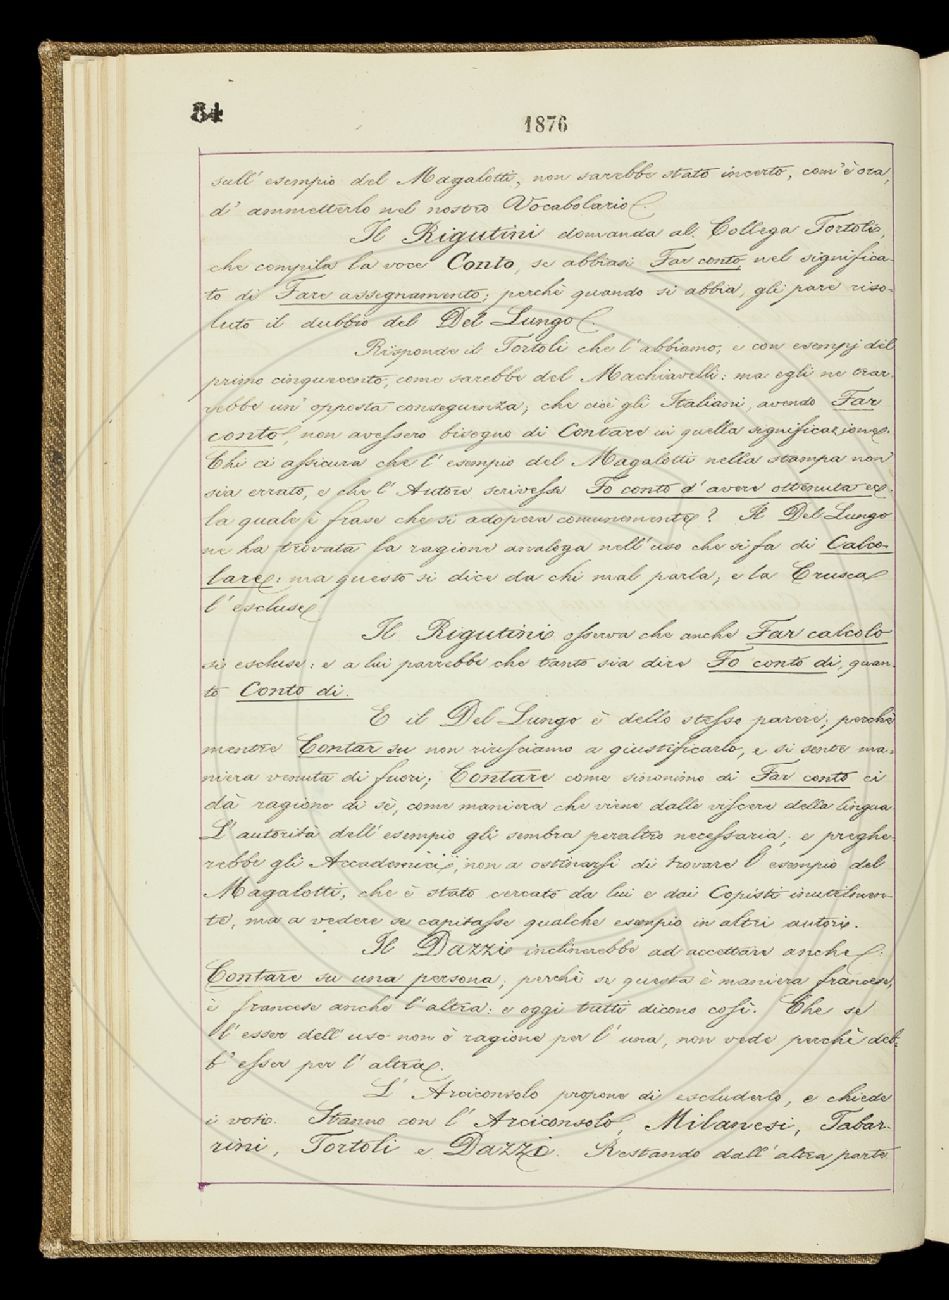 84
1876
sull' esempio del Magalotti, non sarebbe stato incerto, com'è ora,
d' ammetterlo nel nostro Vocabolario.
Il Rigutini domanda al Collega Tortoli,
che compila la voce Conto, se abbiasi Far conto, nel significa-
to di Fare assegnamento; perchè quando si abbia, gli pare riso-
luto il dubbio del Del Lungo.
Risponde il Tortoli che l' abbiamo, e con esempj del
primo cinquecento, come sarebbe del Machiavelli: ma egli ne trar-
rebbe un' opposta conseguenza; che cioè gli Italiani, avendo Far
conto, non avessero bisogno di Contare in quella significazione.
Chi ci assicura che l' esempio del Magalotti nella stampa non
sia errato, e che l' Autore scrivesse Fo conto d' avere ottenuta ec.
la quale è frase che si adopera comunemente? Il Del Lungo
ne ha trovata la ragione analoga nell' uso che si fa di Calco-
lare: ma questo si dice da chi mal parla; e la Crusca
l' escluse.
Il Rigutini osserva che anche Far calcolo
si escluse: e a lui parrebbe che tanto sia dire Fo conto di, quan-
to Conto di.
E il Del Lungo è dello stesso parere; perchè
mentre Contar su non riusciamo a giustificarlo, e si sente ma-
niera venuta di fuori; Contare come sinonimo di Far conto ci
dà ragione di sè, come maniera che viene dalle viscere della lingua.
L' autorità dell' esempio gli sembra peraltro necessaria; e preghe-
rebbe gli Accademici, non a ostinarsi di trovare l' esempio del
Magalotti, che è stato cercato da lui e dai Copisti inutilmen-
te, ma a vedere se capitasse qualche esempio in altri autori.
Il Dazzi inclinerebbe ad accettare anche
Contare su una persona; perchè se questa è maniera francese,
è francese anche l' altra: e oggi tutti dicono così. Che se
l' esser dell' uso non è ragione per l' una, non vede perchè deb-
b' esser per l' altra.
L' Arciconsolo propone di escluderlo, e chiede
i voti. Stanno con l' Arciconsolo, Milanesi, Tabar-
rini, Tortoli e Dazzi. Restando dall' altra parte